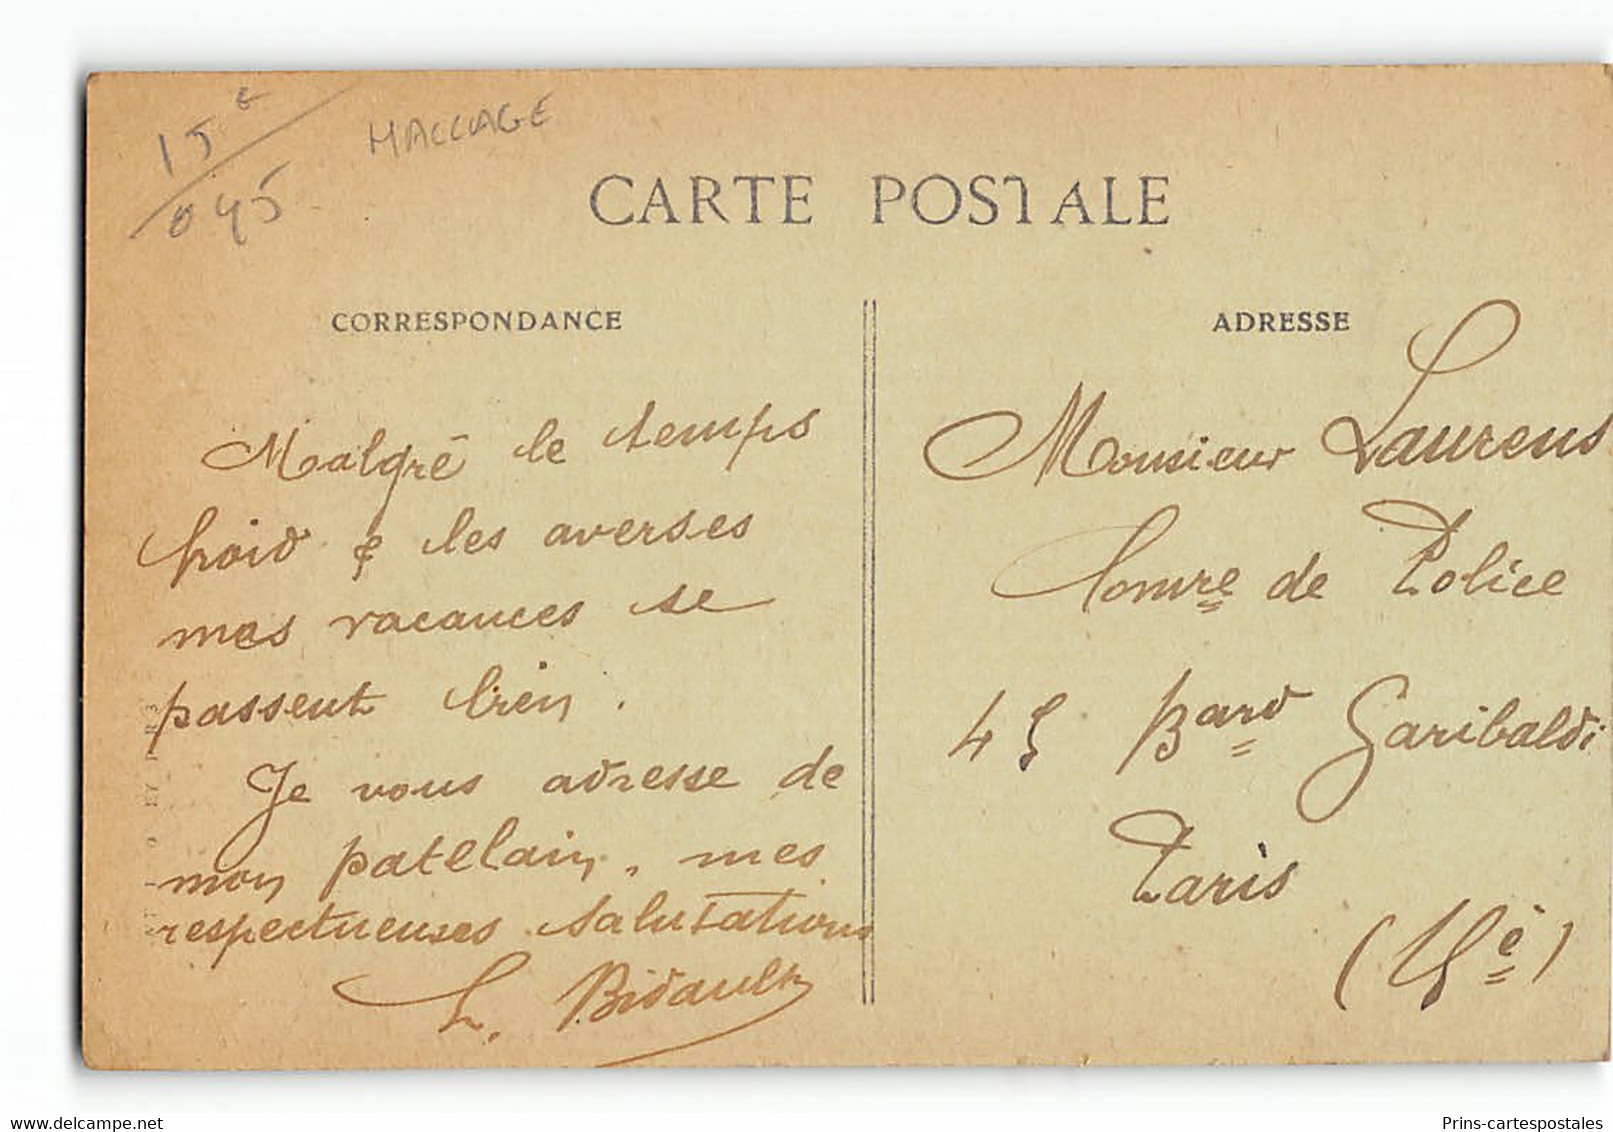 15 €
045
MALLAGE
CARTE POSTALE
CORRESPONDANCE
Malgré le temps
froid & les averses
mes vacances se
passent bien.
Je vous adresse de
mon patelain, mes
respectueuses salutations
L. Bidault
ADRESSE
Monsieur Laurens
Comre de Police
45 Bard Garibaldi
Paris
(15e)
delcampe.net
Prins-cartespostales